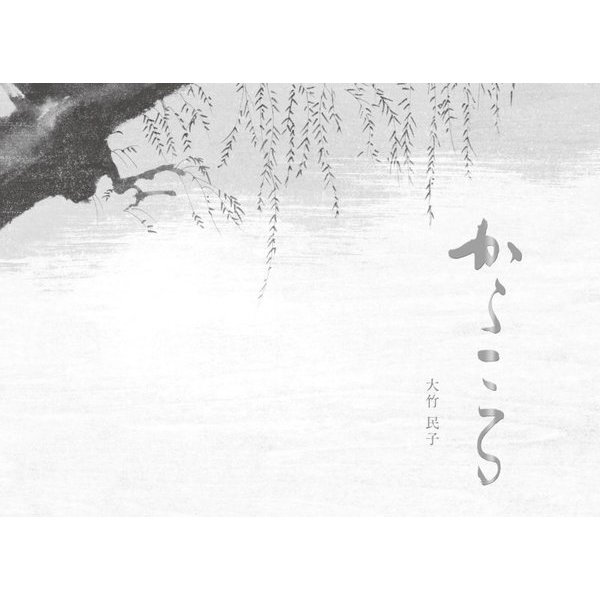 からころ
大竹 民子